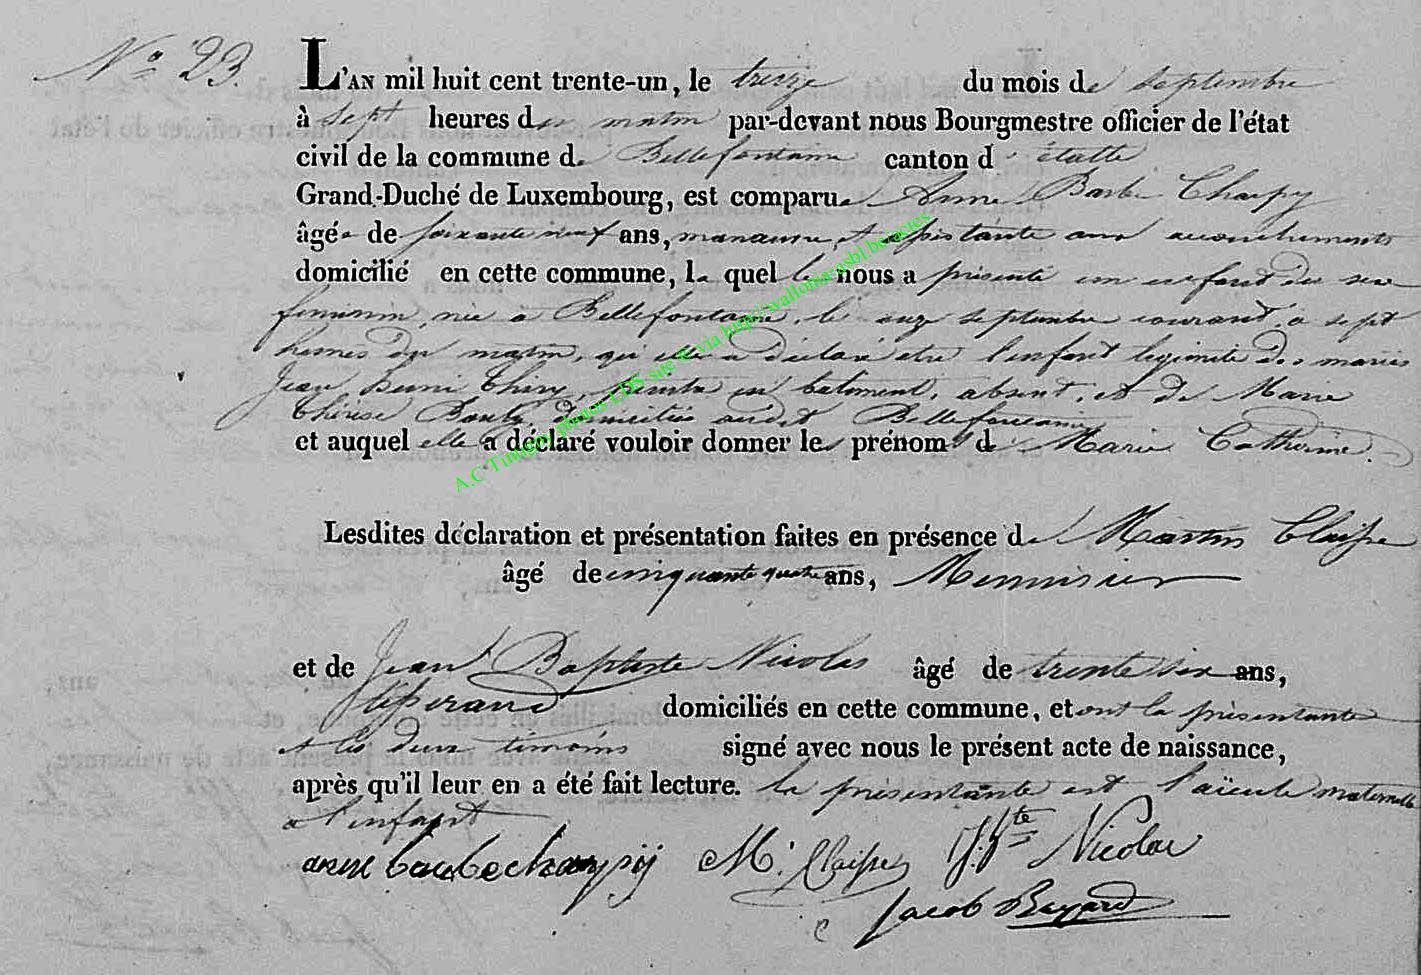 N.º 23.
L'AN mil huit cent trente-un, le treize du mois de septembre
à sept heures du matin par-devant nous Bourgmestre officier de l'état
civil de la commune de Bellefontaine canton d'étalle
Grand-Duché de Luxembourg, est comparue Anne Barbe Charpy
âgée de soixante neuf ans, manœuvre, assistante aux accouchements
domicilié en cette commune, la quelle nous a présenté un enfant du sexe
feminin, née à Bellefontaine, le onze septembre courant, à sept
heures du matin, qu'elle a déclaré etre l'enfant legitime des mariés
Jean Thiry, en batiment, absent, et de Marie
Thérèse domiciliés audit Bellefontaine
et auquel elle a déclaré vouloir donner les prénoms de Marie Catherine.
Lesdites déclaration et présentation faites en présence de Martin Claisse
âgé de cinquante quatre ans, Menuisier
et de Jean Baptiste Nicolas âgé de trente six ans,
domiciliés en cette commune, et ont la présentante
et les deux témoins signé avec nous le présent acte de naissance,
après qu'il leur en a été fait lecture. la présentante est l'aïeule maternelle
a l'enfant
anne barbe charpÿ M. Claisse J. Bte Nicolas
Jacob Bayard
A.C Tintigny photos LDS site & via http://wallonia-asbl.be/actes